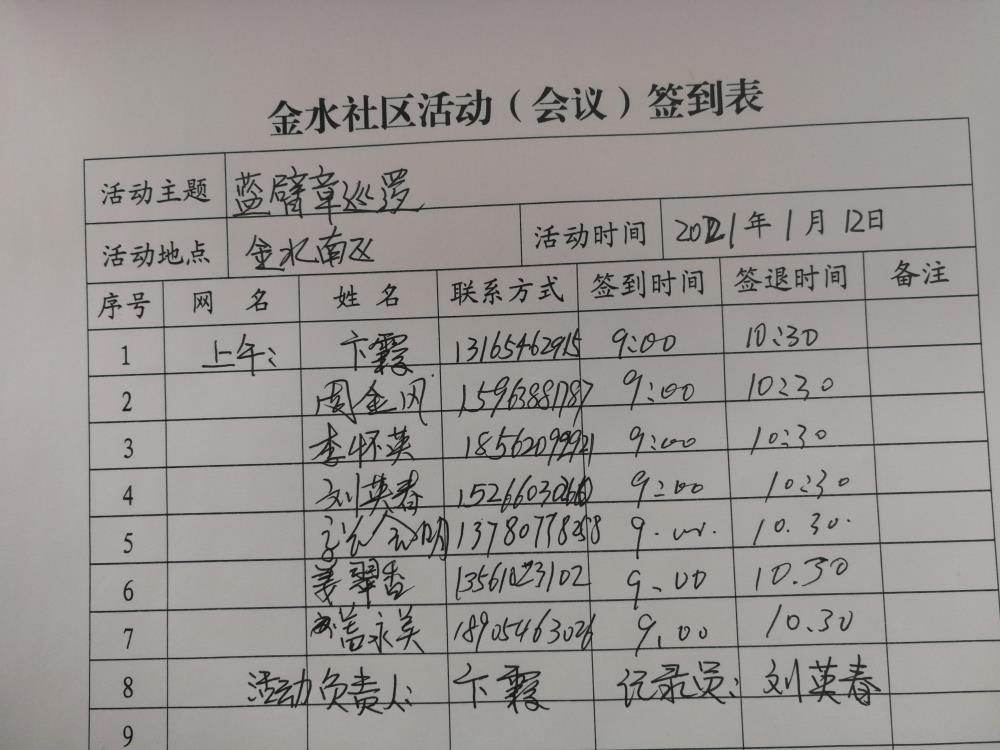 金水社区活动（会议）签到表
活动主题 蓝臂章巡逻
活动地点 金水南区 活动时间 2021年1月12日
序号 网名 姓名 联系方式 签到时间 签退时间 备注
1 上午: 卞霞 13165462915 9:00 10:30
2 周金凤 15963881787 9:00 10:30
3 李怀英 18562099921 9:00 10:30
4 刘英春 9:00 10:30
5 13780778258 9.00. 10.30.
6 姜翠香 13561023102 9.00 10.30
7 盖永美 18905463026 9.00 10.30
8 活动负责人: 卞霞 记录员: 刘英春
9